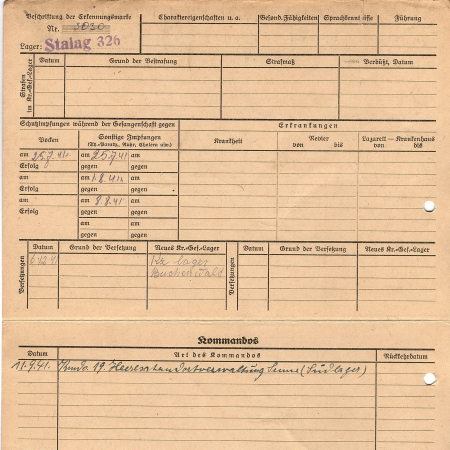 Beschriftung der Erkennungsmarke
Nr. 3030
Lager: Stalag 326
Charaktereigenschaften u. a.
Besond. Fähigkeiten
Sprachkenntnisse
Führung
Strafen im Kr.-Gef.-Lager
Datum
Grund der Bestrafung
Strafmaß
Verbüßt, Datum
Schutzimpfungen während der Gefangenschaft gegen
Erkrankungen
Pocken
Sonstige Impfungen
(Ty.-Paraty., Ruhr, Cholera usw.)
Krankheit
Revier
von bis
Lazarett — Krankenhaus
von bis
am 25.7.41. am 25.7.41 am
Erfolg gegen gegen
am am 1.8.41. am
Erfolg gegen gegen
am am 8.8.41. am
Erfolg gegen gegen
am am
gegen gegen
Versetzungen
Datum
Grund der Versetzung
Neues Kr.-Gef.-Lager
Versetzungen
Datum
Grund der Versetzung
Neues Kr.-Gef.-Lager
Kz lager
Buchenwald
Kommandos
Datum
Art des Kommandos
Rückkehrdatum
11.9.41. 19. Heeresstandortverwaltung Senne (Südlager)